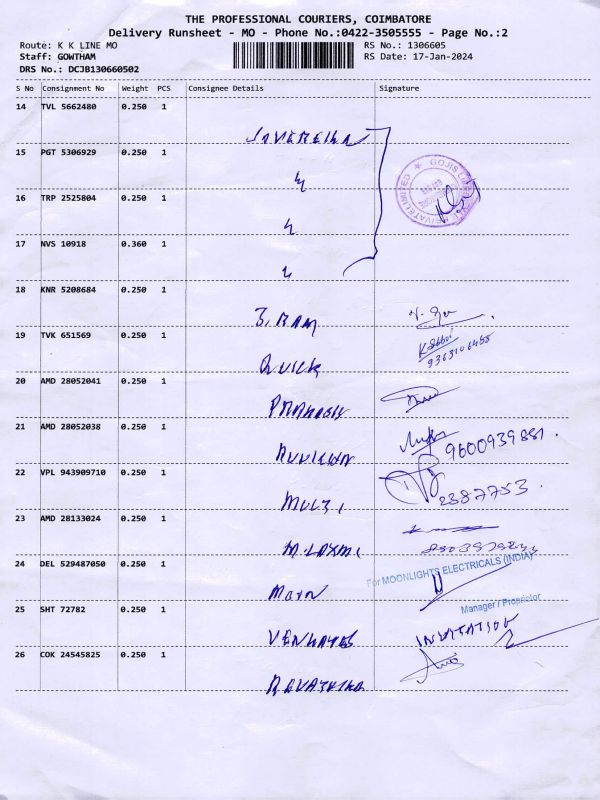 THE PROFESSIONAL COURIERS, COIMBATORE
Delivery Runsheet - MO - Phone No.:0422-3505555 - Page No.:2
Route: K K LINE MO RS No.: 1306605
Staff: GOWTHAM RS Date: 17-Jan-2024
DRS No.: DCJB130660502
S No Consignment No Weight PCS Consignee Details Signature
14 TVL 5662480 0.250 1
15 PGT 5306929 0.250 1
16 TRP 2525804 0.250 1
17 NVS 10918 0.360 1
18 KNR 5208684 0.250 1
19 TVK 651569 0.250 1
QUICK
20 AMD 28052041 0.250 1
PRAKASH
21 AMD 28052038 0.250 1
9600939881.
22 VPL 943909710 0.250 1
2387753.
23 AMD 28133024 0.250 1
M.LAXMI
24 DEL 529487050 0.250 1
For MOONLIGHTS ELECTRICALS (INDIA)
Manager / Proprietor
25 SHT 72782 0.250 1
VENKATES
26 COK 24545825 0.250 1